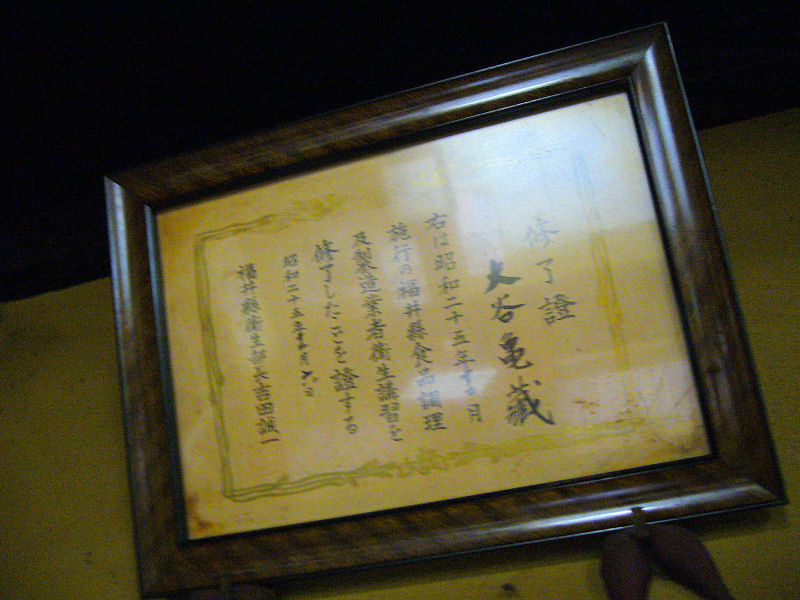 修了證
大谷亀藏
右は昭和二十五年十一月
施行の福井縣食品調理
及製造業者衛生講習を
修了したことを證する
昭和二十五年十一月六日
福井縣衛生部長吉田誠一